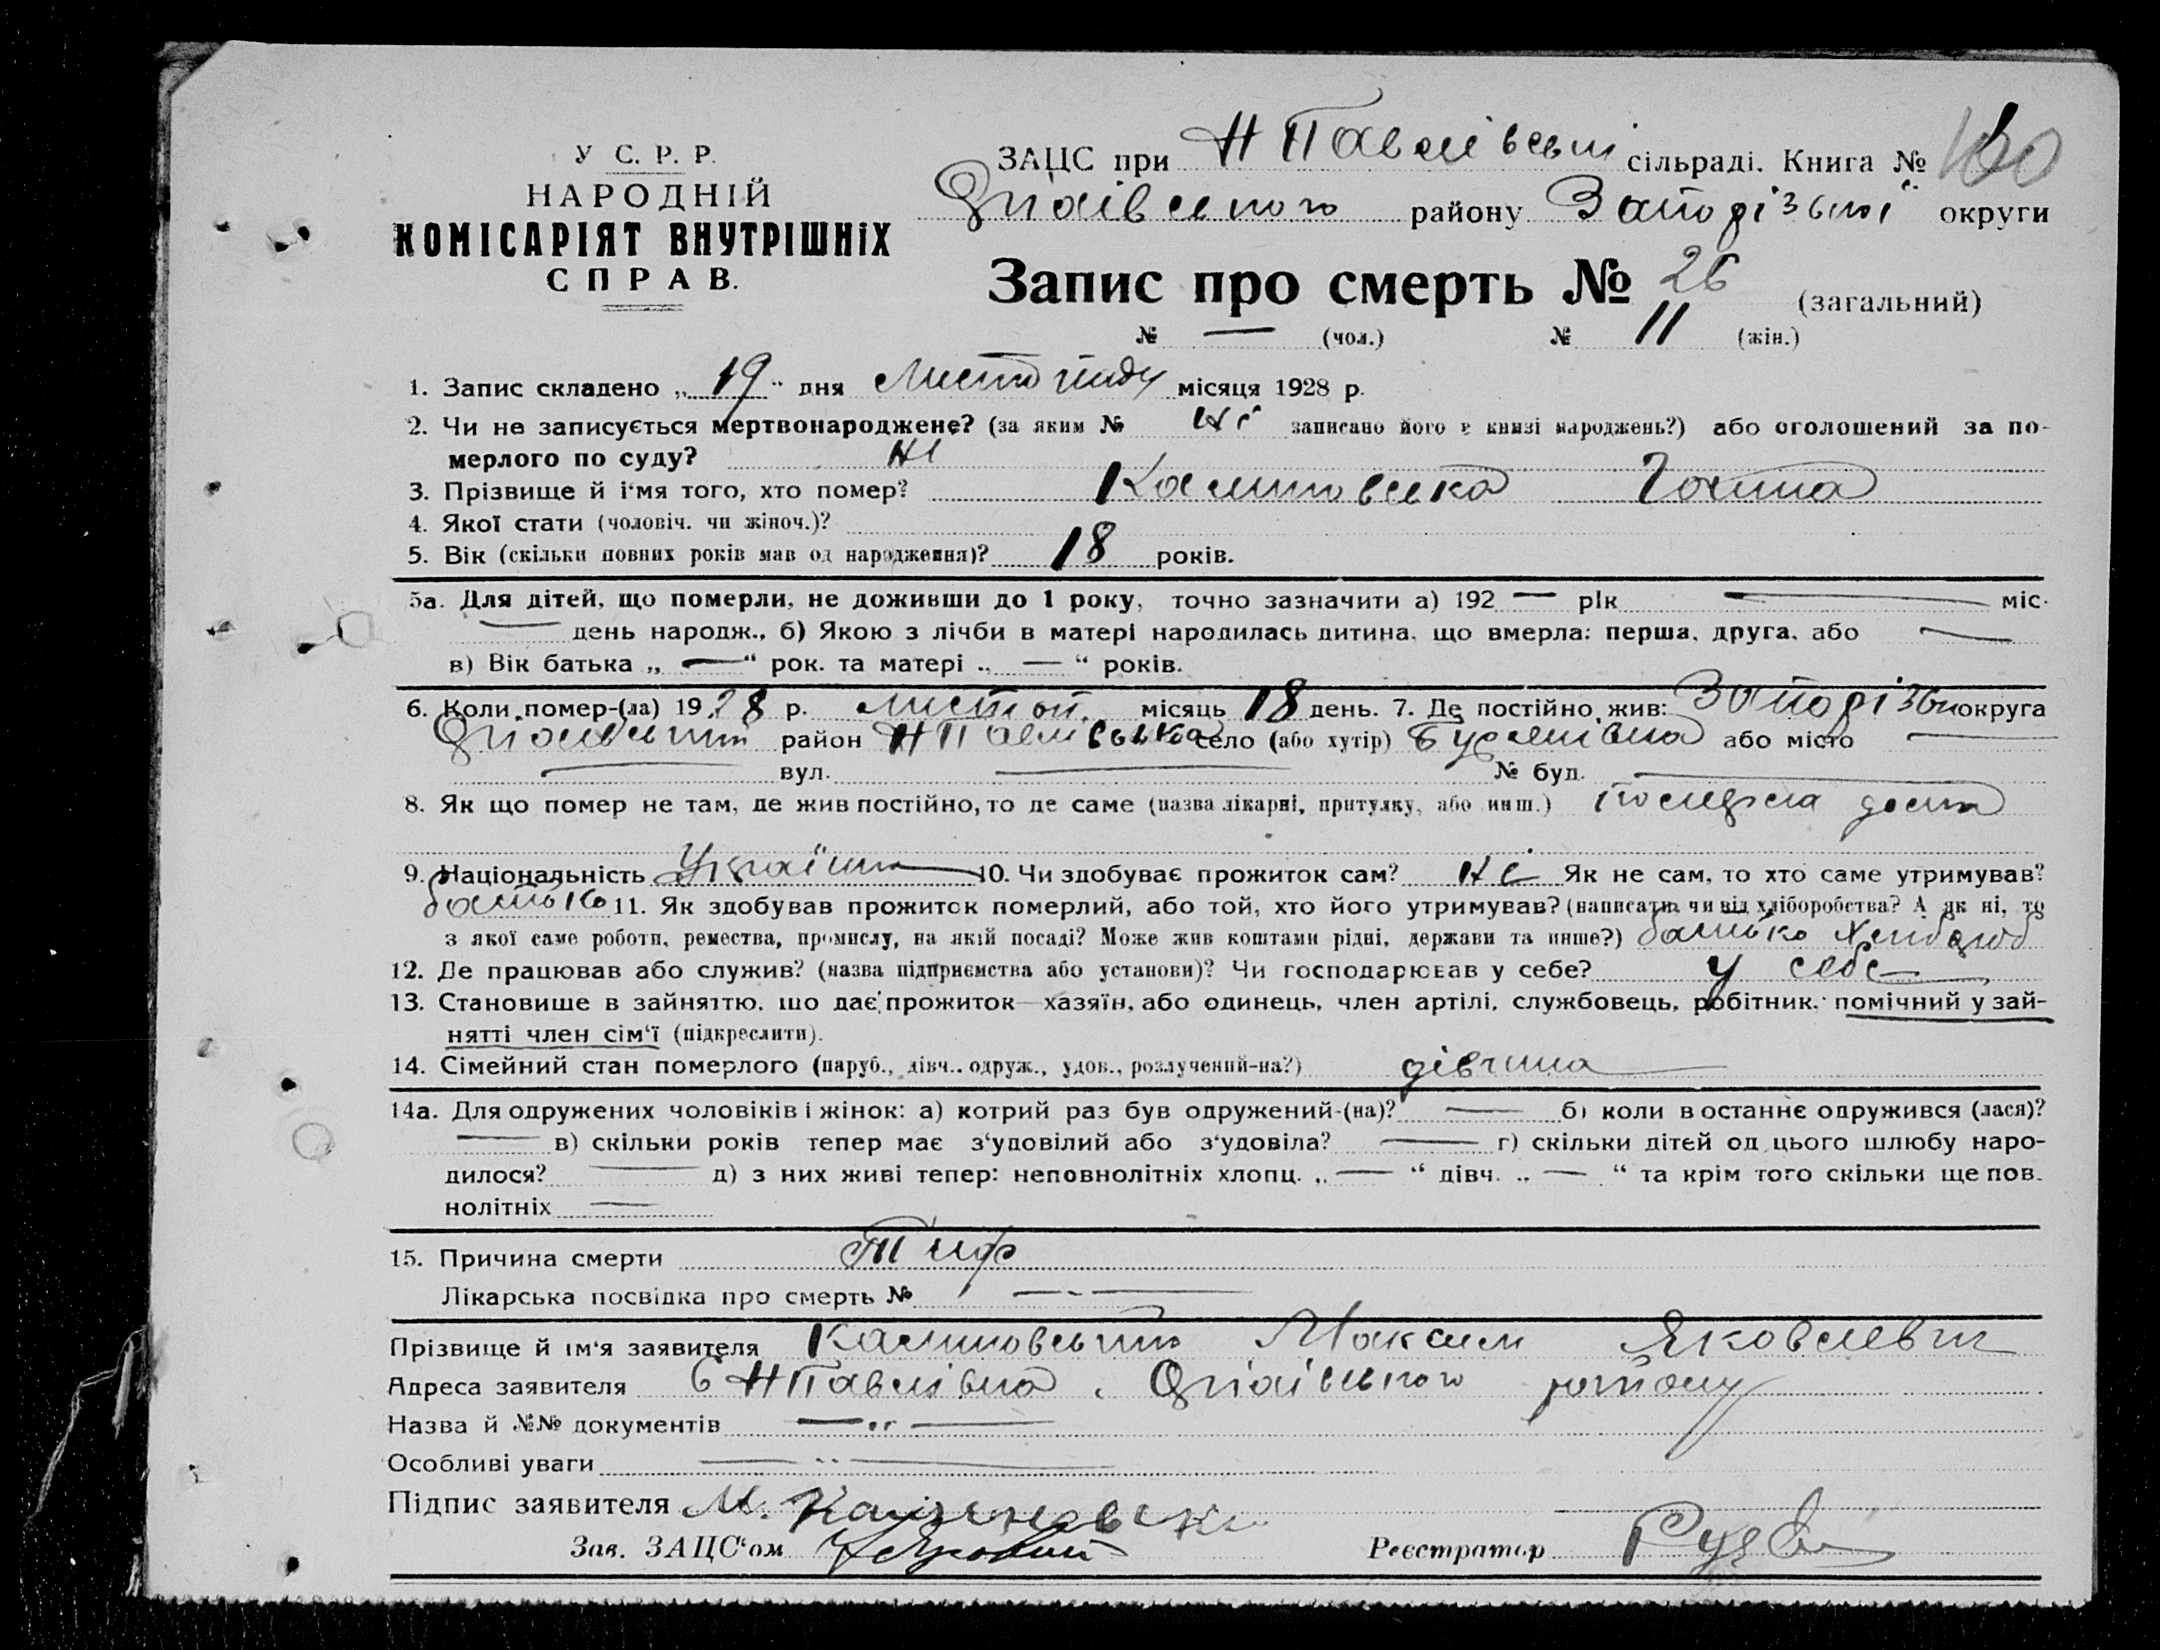 У С. Р. Р.
НАРОДНІЙ
КОМІСАРІЯТ ВНУТРІШНІХ
СПРАВ.
ЗАЦС при Н Павлівські сільраді. Книга №
району Запорізької округи
Запис про смерть № 26 (загальний)
№ — (чол.) № 11 (жін.)
1. Запис складено „ 19 “ дня Листопаду місяця 1928 р.
2. Чи не записується мертвонароджене? (за яким № Ні записано його в книзі народжень?) або оголошений за по-
мерлого по суду? Ні
3. Прізвище й і‘мя того, хто помер? Калиновська Галина
4. Якої стати (чоловіч. чи жіноч.)?
5. Вік (скільки повних років мав од народження)? 18 років.
5а. Для дітей, що померли, не доживши до 1 року, точно зазначити а) 192 — рік — міс.
— день народж., б) Якою з лічби в матері народилась дитина, що вмерла: перша, друга, або —
в) Вік батька „ — “ рок. та матері „ — “ років.
6. Коли помер-(ла) 1928 р. листоп. місяць 18 день. 7. Де постійно жив: Запорізьк округа
район Н Павлівська село (або хутір) або місто —
— вул. — № буд. —
8. Як що помер не там, де жив постійно, то де саме (назва лікарні, притулку, або инш.) померла дома
9. Національність Українка 10. Чи здобуває прожиток сам? Ні Як не сам, то хто саме утримував?
батько 11. Як здобував прожиток померлий, або той, хто його утримував? (написати чи від хліборобства? А як ні, то
з якої саме роботи, ремества, промислу, на якій посаді? Може жив коштами рідні, держави та инше?) батько хлібороб
12. Де працював або служив? (назва підприємства або установи)? Чи господарював у себе? у себе
13. Становище в зайняттю, що дає прожиток—хазяїн, або одинець, член артілі, службовець, робітник, помічний у зай-
нятті член сім‘ї (підкреслити).
14. Сімейний стан померлого (паруб., дівч., одруж., удов., розлучений-на?) дівчина
14а. Для одружених чоловіків і жінок: а) котрий раз був одружений-(на)? — б) коли в останнє одружився (лася)?
— в) скільки років тепер має з‘удовілий або з‘удовіла? — г) скільки дітей од цього шлюбу наро-
дилося? — д) з них живі тепер: неповнолітніх хлопц. „ — “ дівч. „ — “ та крім того скільки ще пов.
нолітніх —
15. Причина смерти Тиф
Лікарська посвідка про смерть № —
Прізвище й ім‘я заявителя Калиновський Максим Яковлевич
Адреса заявителя с Н Павлівка, району
Назва й №№ документів —
Особливі уваги —
Підпис заявителя М. Калиновськ
Зав. ЗАЦС‘ом
Реєстратор